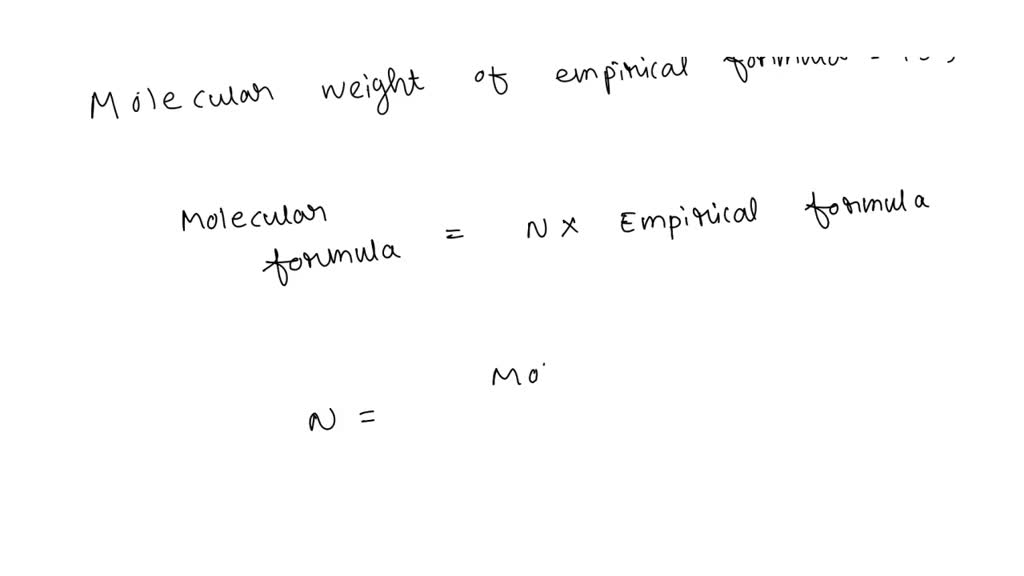 Molecular weight of empirical formula =
Molecular
formula = N x Empirical formula
Mo
N =